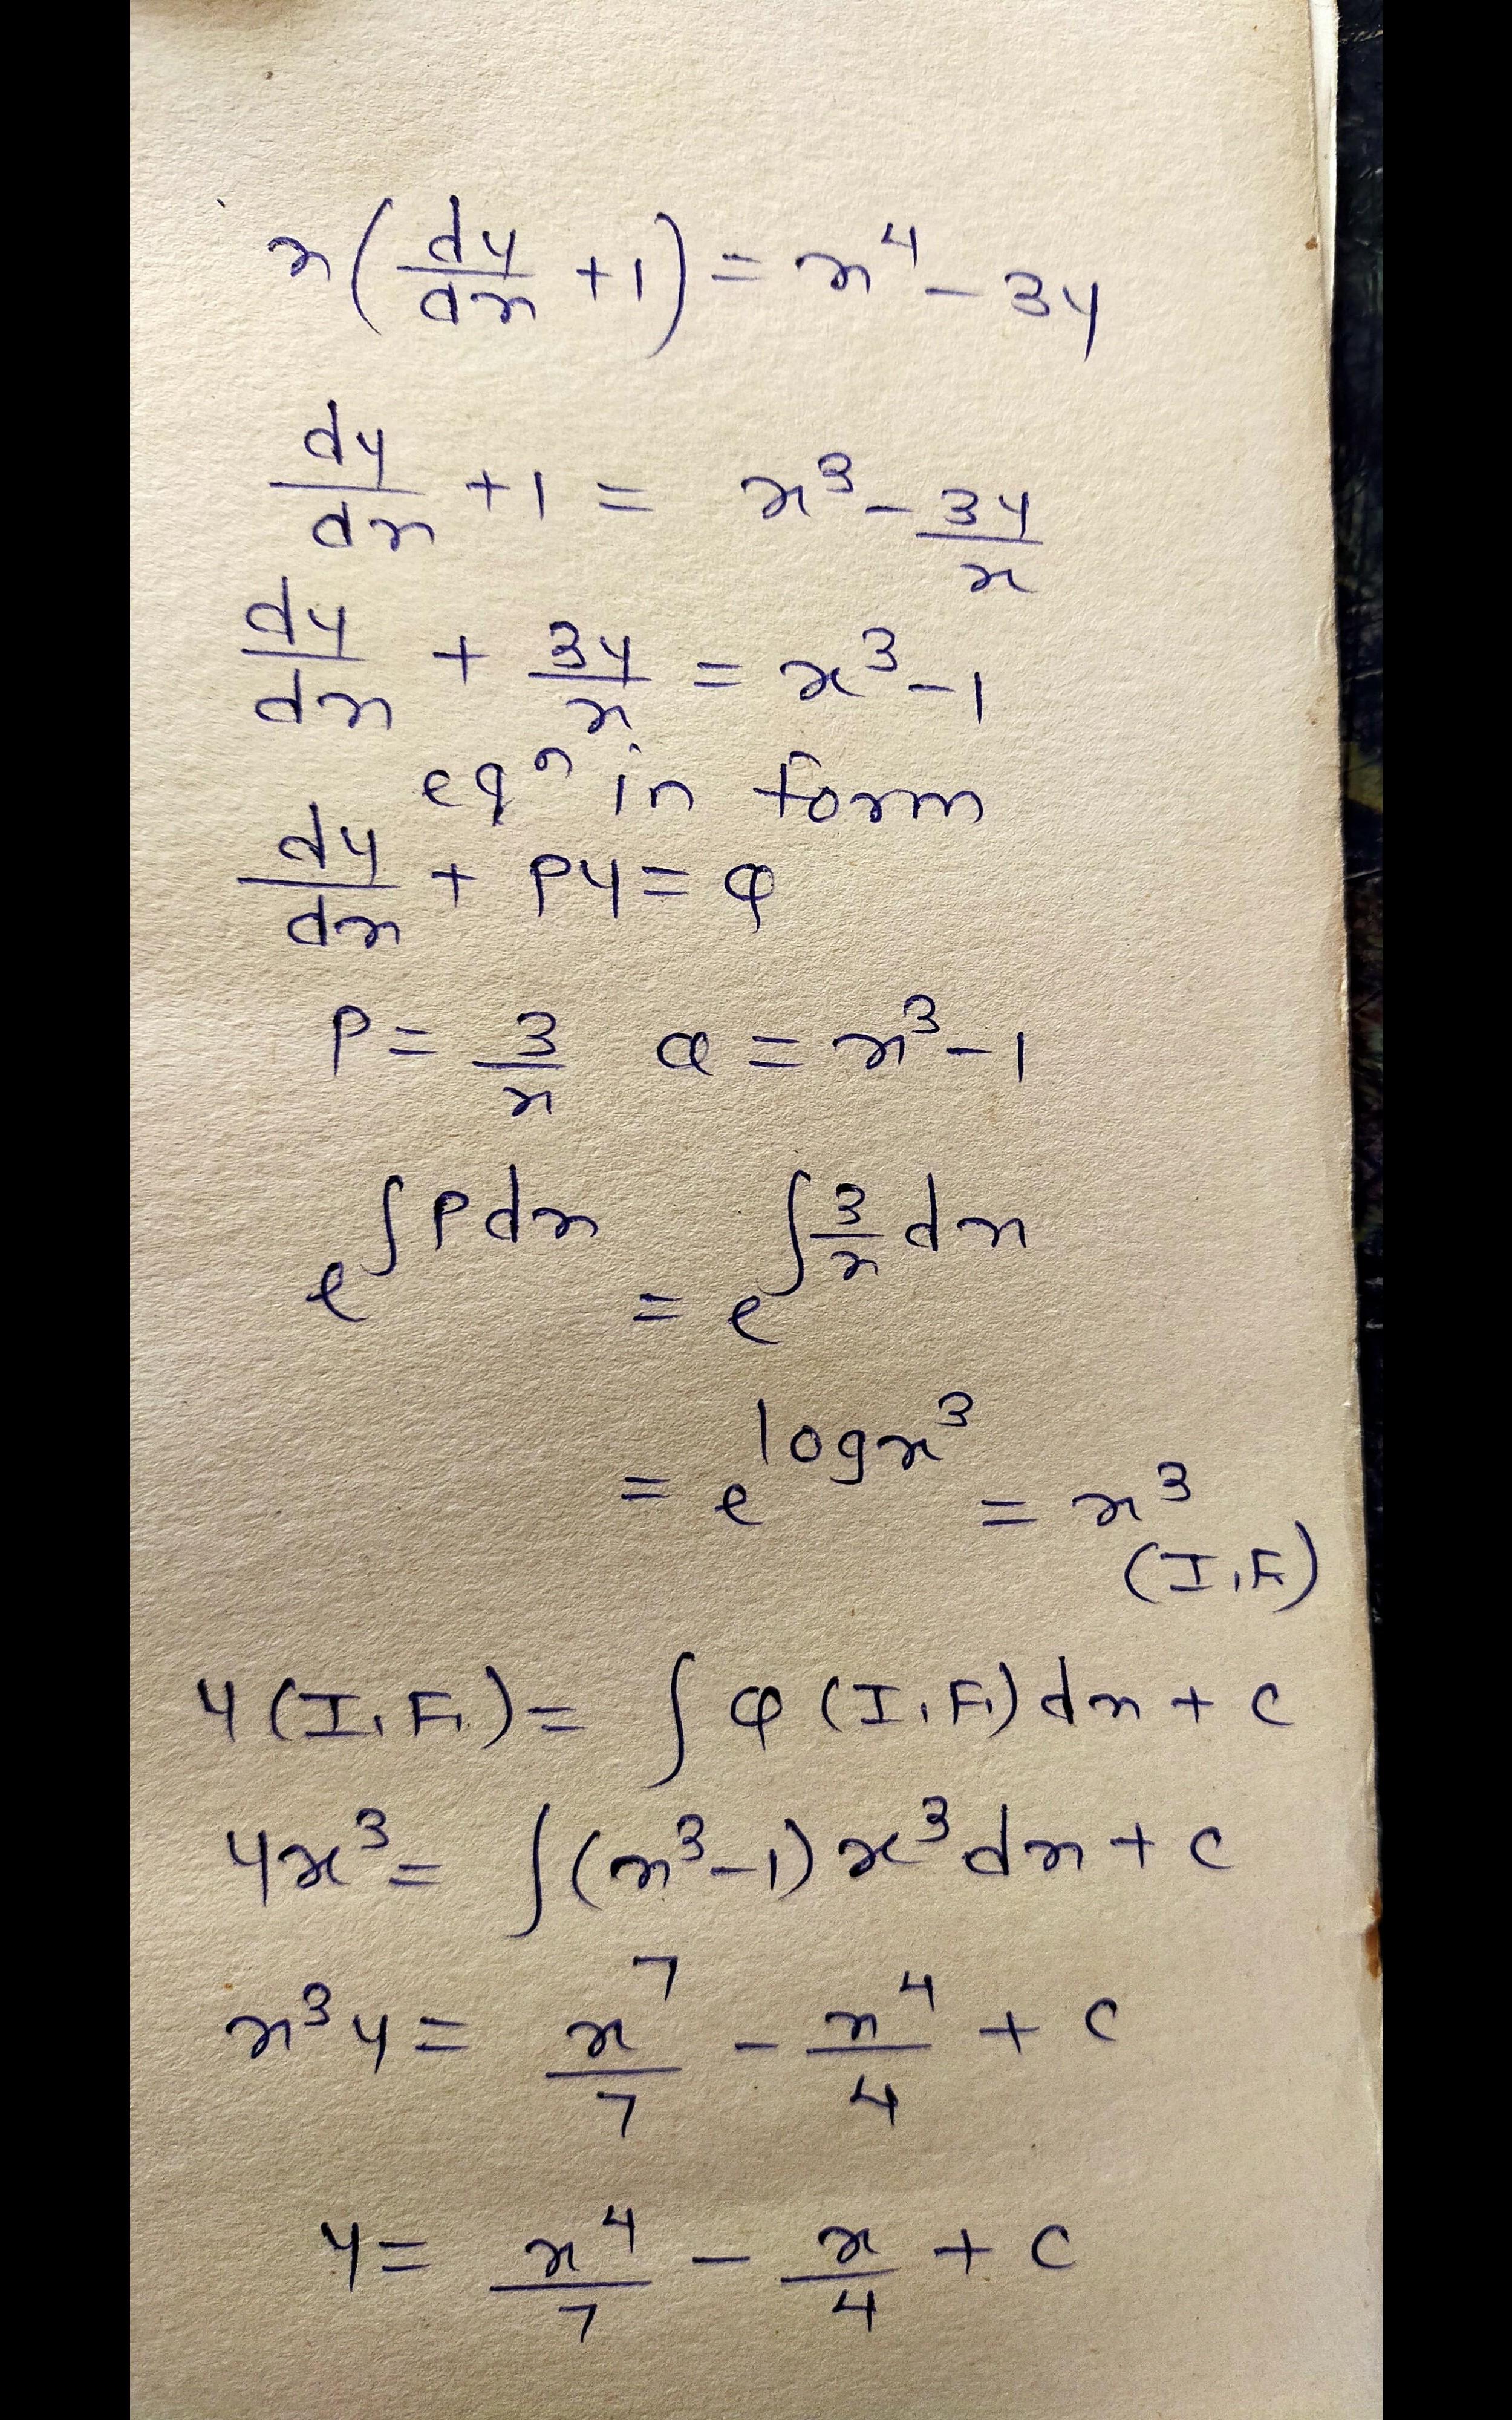 x(dy/dx + 1) = x⁴ - 3y
dy/dx + 1 = x³ - 3y/x
dy/dx + 3y/x = x³ - 1
eqⁿ in form
dy/dx + Py = Q
P = 3/x Q = x³ - 1
e^∫Pdx = e^∫3/x dx
= e^logx³ = x³
(I.F.)
y(I.F.) = ∫Q(I.F.)dx + c
yx³ = ∫(x³-1)x³dx + c
x³y = x⁷/7 - x⁴/4 + c
y = x⁴/7 - x/4 + c